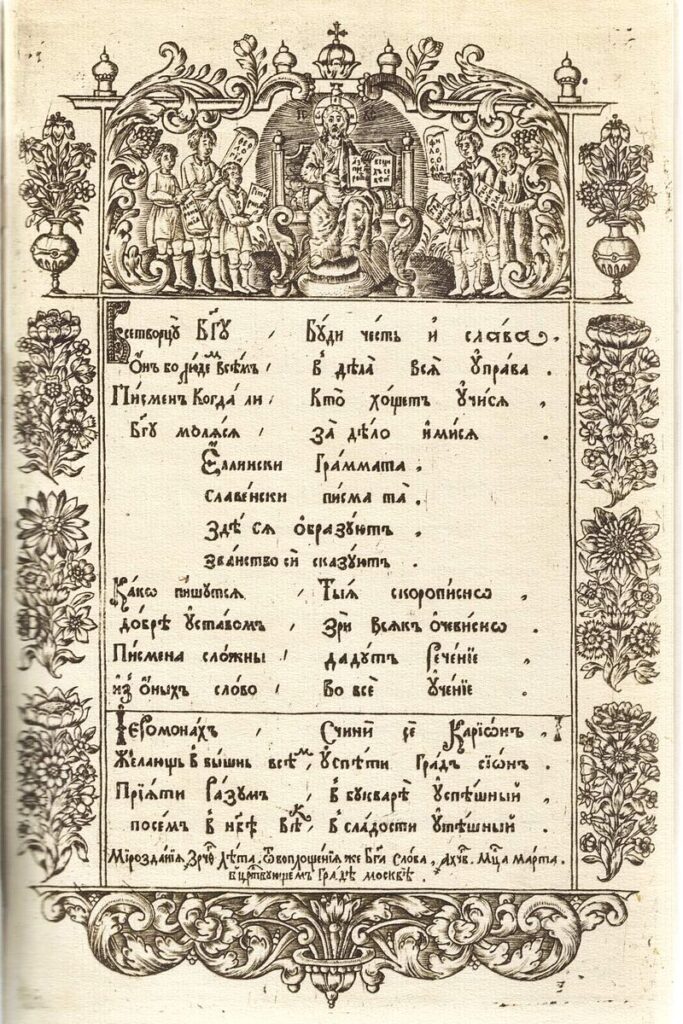 Всетворцꙋ̀ Бг҃ꙋ / Бꙋ́ди че́сть и҆ сла́ва .
О҆́нъ бо лю́демъ всѣ́мъ / в̾ дѣ́ла всѧ̑ ᲂу҆пра́ва .
Пи́сменъ Когда́ ли / Кто̀ хо́щетъ ᲂу҆чи́сѧ ,
Бг҃ꙋ молѧ́сѧ / за̀ дѣ́ло и҆ми́сѧ .
Е҆́ллински Гра́ммата ,
славе́нски пи́сма та̑ .
здѣ́ сѧ ѻ҆бразꙋ́ютъ ,
зва́нство сѝ сказꙋ́ютъ .
Ка́кѡ пи́шꙋтсѧ / Ты́ѧ скоропи́снѡ ,
до́брѣ ᲂу҆ста́вомъ / Зрѝ всѧ́къ ѻ҆чеви́снѡ .
Пи́смена сло́жны / даду́тъ Рече́нїе ,
и҆з̾ ѻ҆́ныхъ сло́во / Во всѐ ᲂу҆че́нїе .
І҆еромона́хъ , Счини́ сѐ Карїѡ́нъ ,
Жела́ющь в̾ вы́шнь всѣ́мъ , ᲂу҆спѣ́ти Гра́дъ сїѡ́нъ .
Прїѧ́ти Ра́зꙋмъ , в̾ бꙋкварѣ̀ ᲂу҆спѣ́шный ,
посе́мъ в̾ нб҃ѣ вѣ́къ , в̾ сла́дости ᲂу҆тѣ́шный .
Мірозда́нїѧ ҂зр҃чв Лѣ́та . Ѿ воплоще́нїѧ же Бг҃а Сло́ва , ҂ахч҃в . Мц҃а ма́рта .
В цр҃твꙋющемъ Гра́дѣ москвѣ̀ .